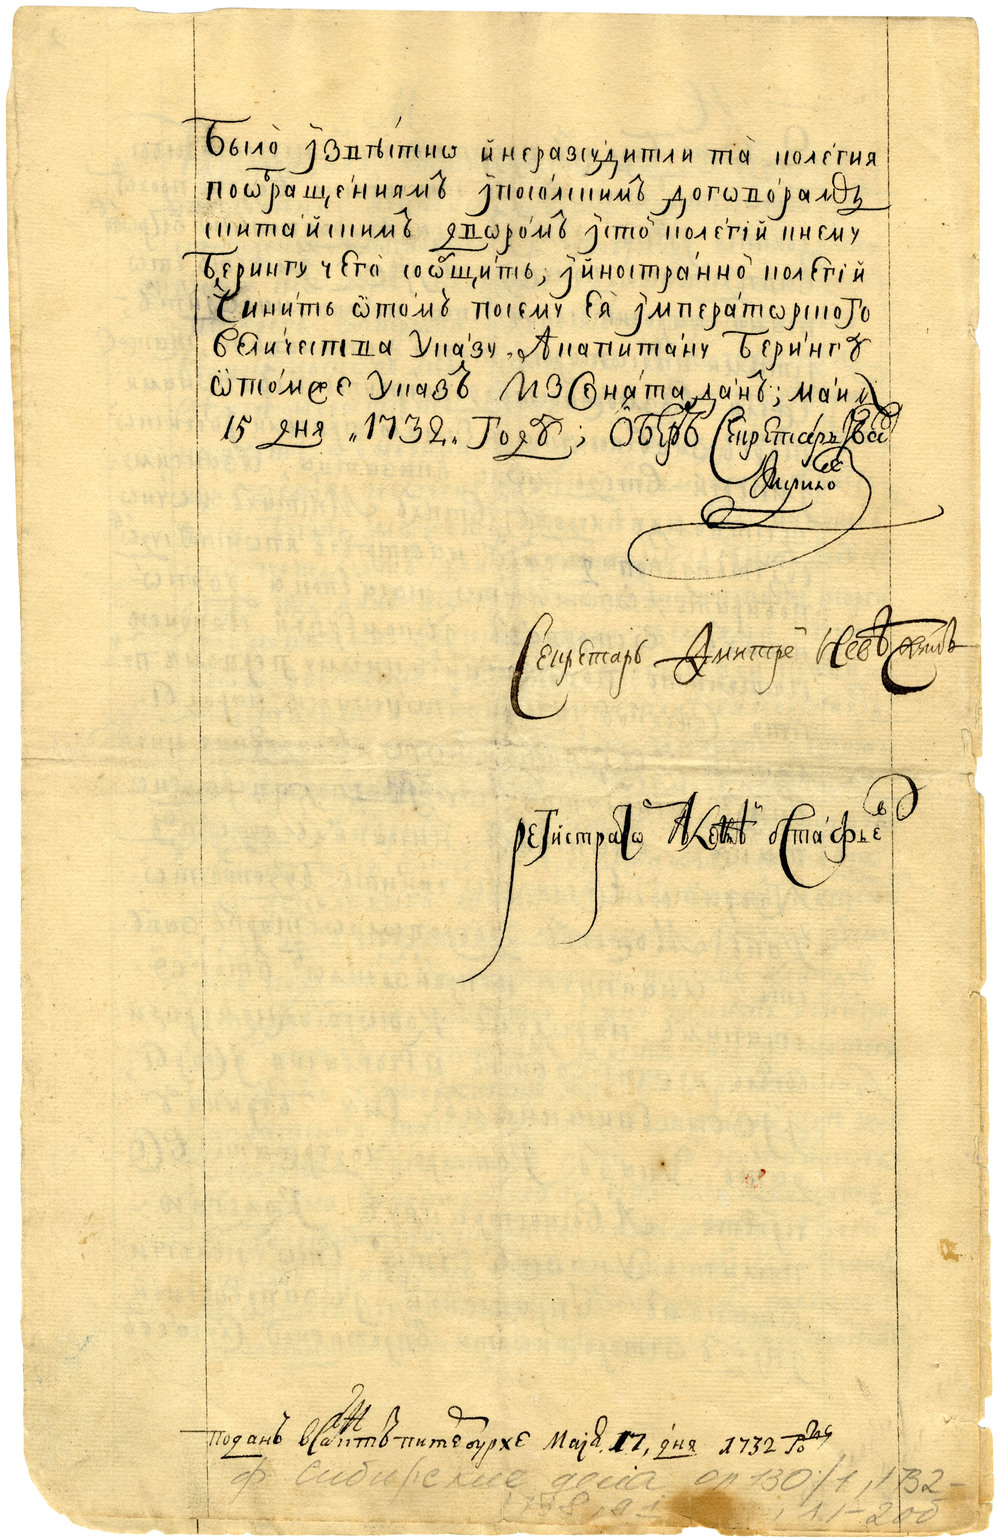 было извѣстно и неразсудитли та колегия
пообращениямъ ипосолскимъ договорамъ
скитайскимъ дворомъ исто колегиї кнему
Берингу чего сообщить, ииностранно колегиї
Чинить ѿтомъ посему Ея імператорского
величества Указу, Акапитану Берингу
ѿтомже Указъ ИЗСѣната данъ; маия
15 дня „1732„ Году; Оберъ Секретарь Іва
Кирило
Секретарь Дмитреї Невѣжинъ
регистрато Остафье
поданъ вСанктъ питербурхе Маія, 17, дня 1732 Году
ф Сибирские дела оп 130/1, 1732-
1738, д 1, л 1-20об